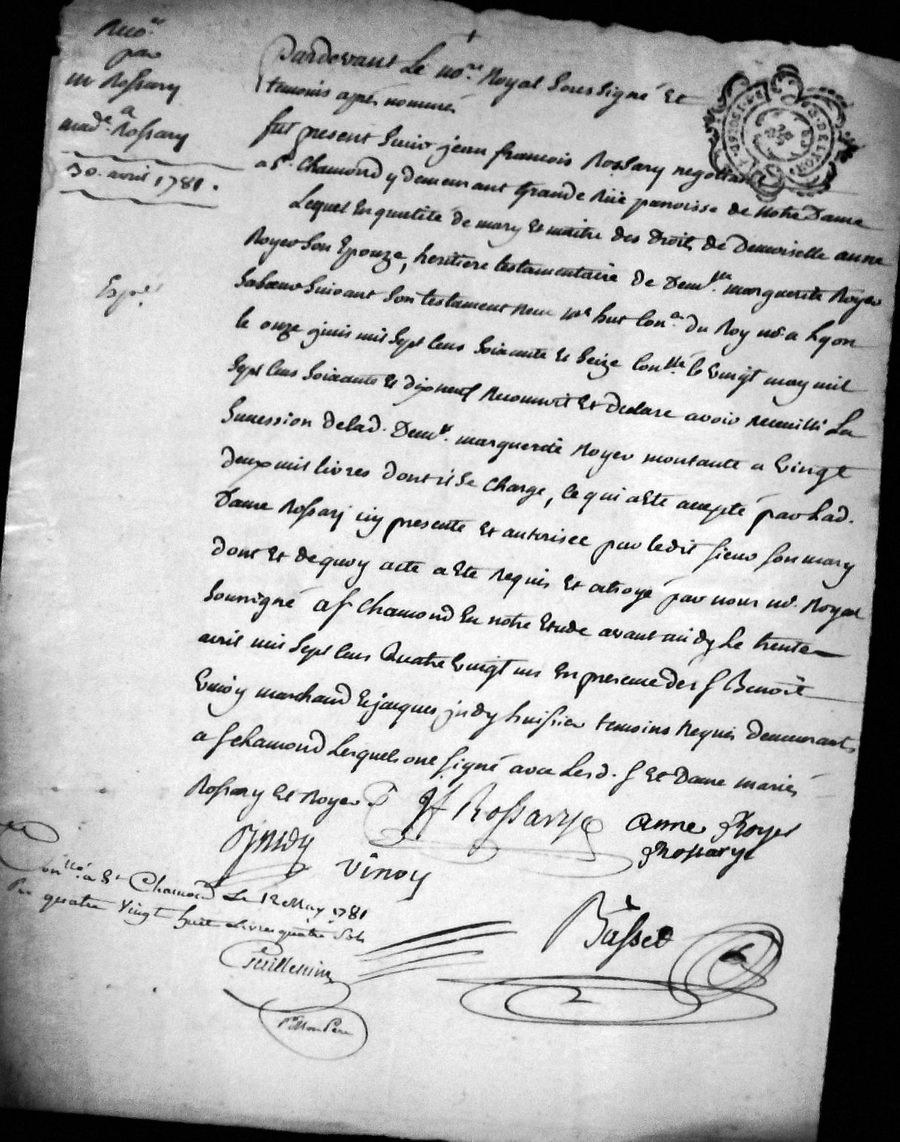 Reco.
par
m Rossary
a
mad.e Rossary
30. avril 1781.
Exp.
Pardevant Le no.re Royal Soussigné Et
temoins aprés nommés
fut present Sieur jean francois Rossary negotiant
a S.t Chamond y demeurant Grande Rüe parroisse de Notre Dame
Lequel En qualité de mary Et maitre des Droits de Demoiselle anne
Royer Son Epouze, heritiere testamentaire de Dem.lle marguerite Royer
Sa Sœur Suivant Son testament Reçu M.e hut Con.er du Roy no.re a Lyon
le onze juin mil Sept Cens Soixante Et Seize Con.llé le Vingt may mil
Sept Cens Soixante Et dix neuf Reconnoit Et declare avoir Recueilli La
Succession de lad. Dem.lle marguerite Royer montante a Vingt
deux mil livres dont il Se Charge, Ce qui a Eté accepté par Lad.
Dame Rossary icy presente Et autorisée par le dit Sieur Son mary
dont Et de quoy acte a Eté Requis Et octroyé par nous no.re Royal
Soussigné a S.t Chamond En notre Etude avant midy Le trente
avril mil Sept Cens Quatre Vingt un En presence de S.r Benoit
Vinoy marchand Et jacques judy huissier temoins Requis demeurants
a S.t Chamond Lesquels ont Signé avec Lesd. S.r Et Dame mariés
Rossary Et Royer
Jf Rossary
anne Royer
Rossary
Judy
Vinoy
Con.llé a S.t Chamond Le 12 May 1781
Reçu quatre Vingt huit Livres quatre Sols
Guillemin
P.r Mon Pere
Basset